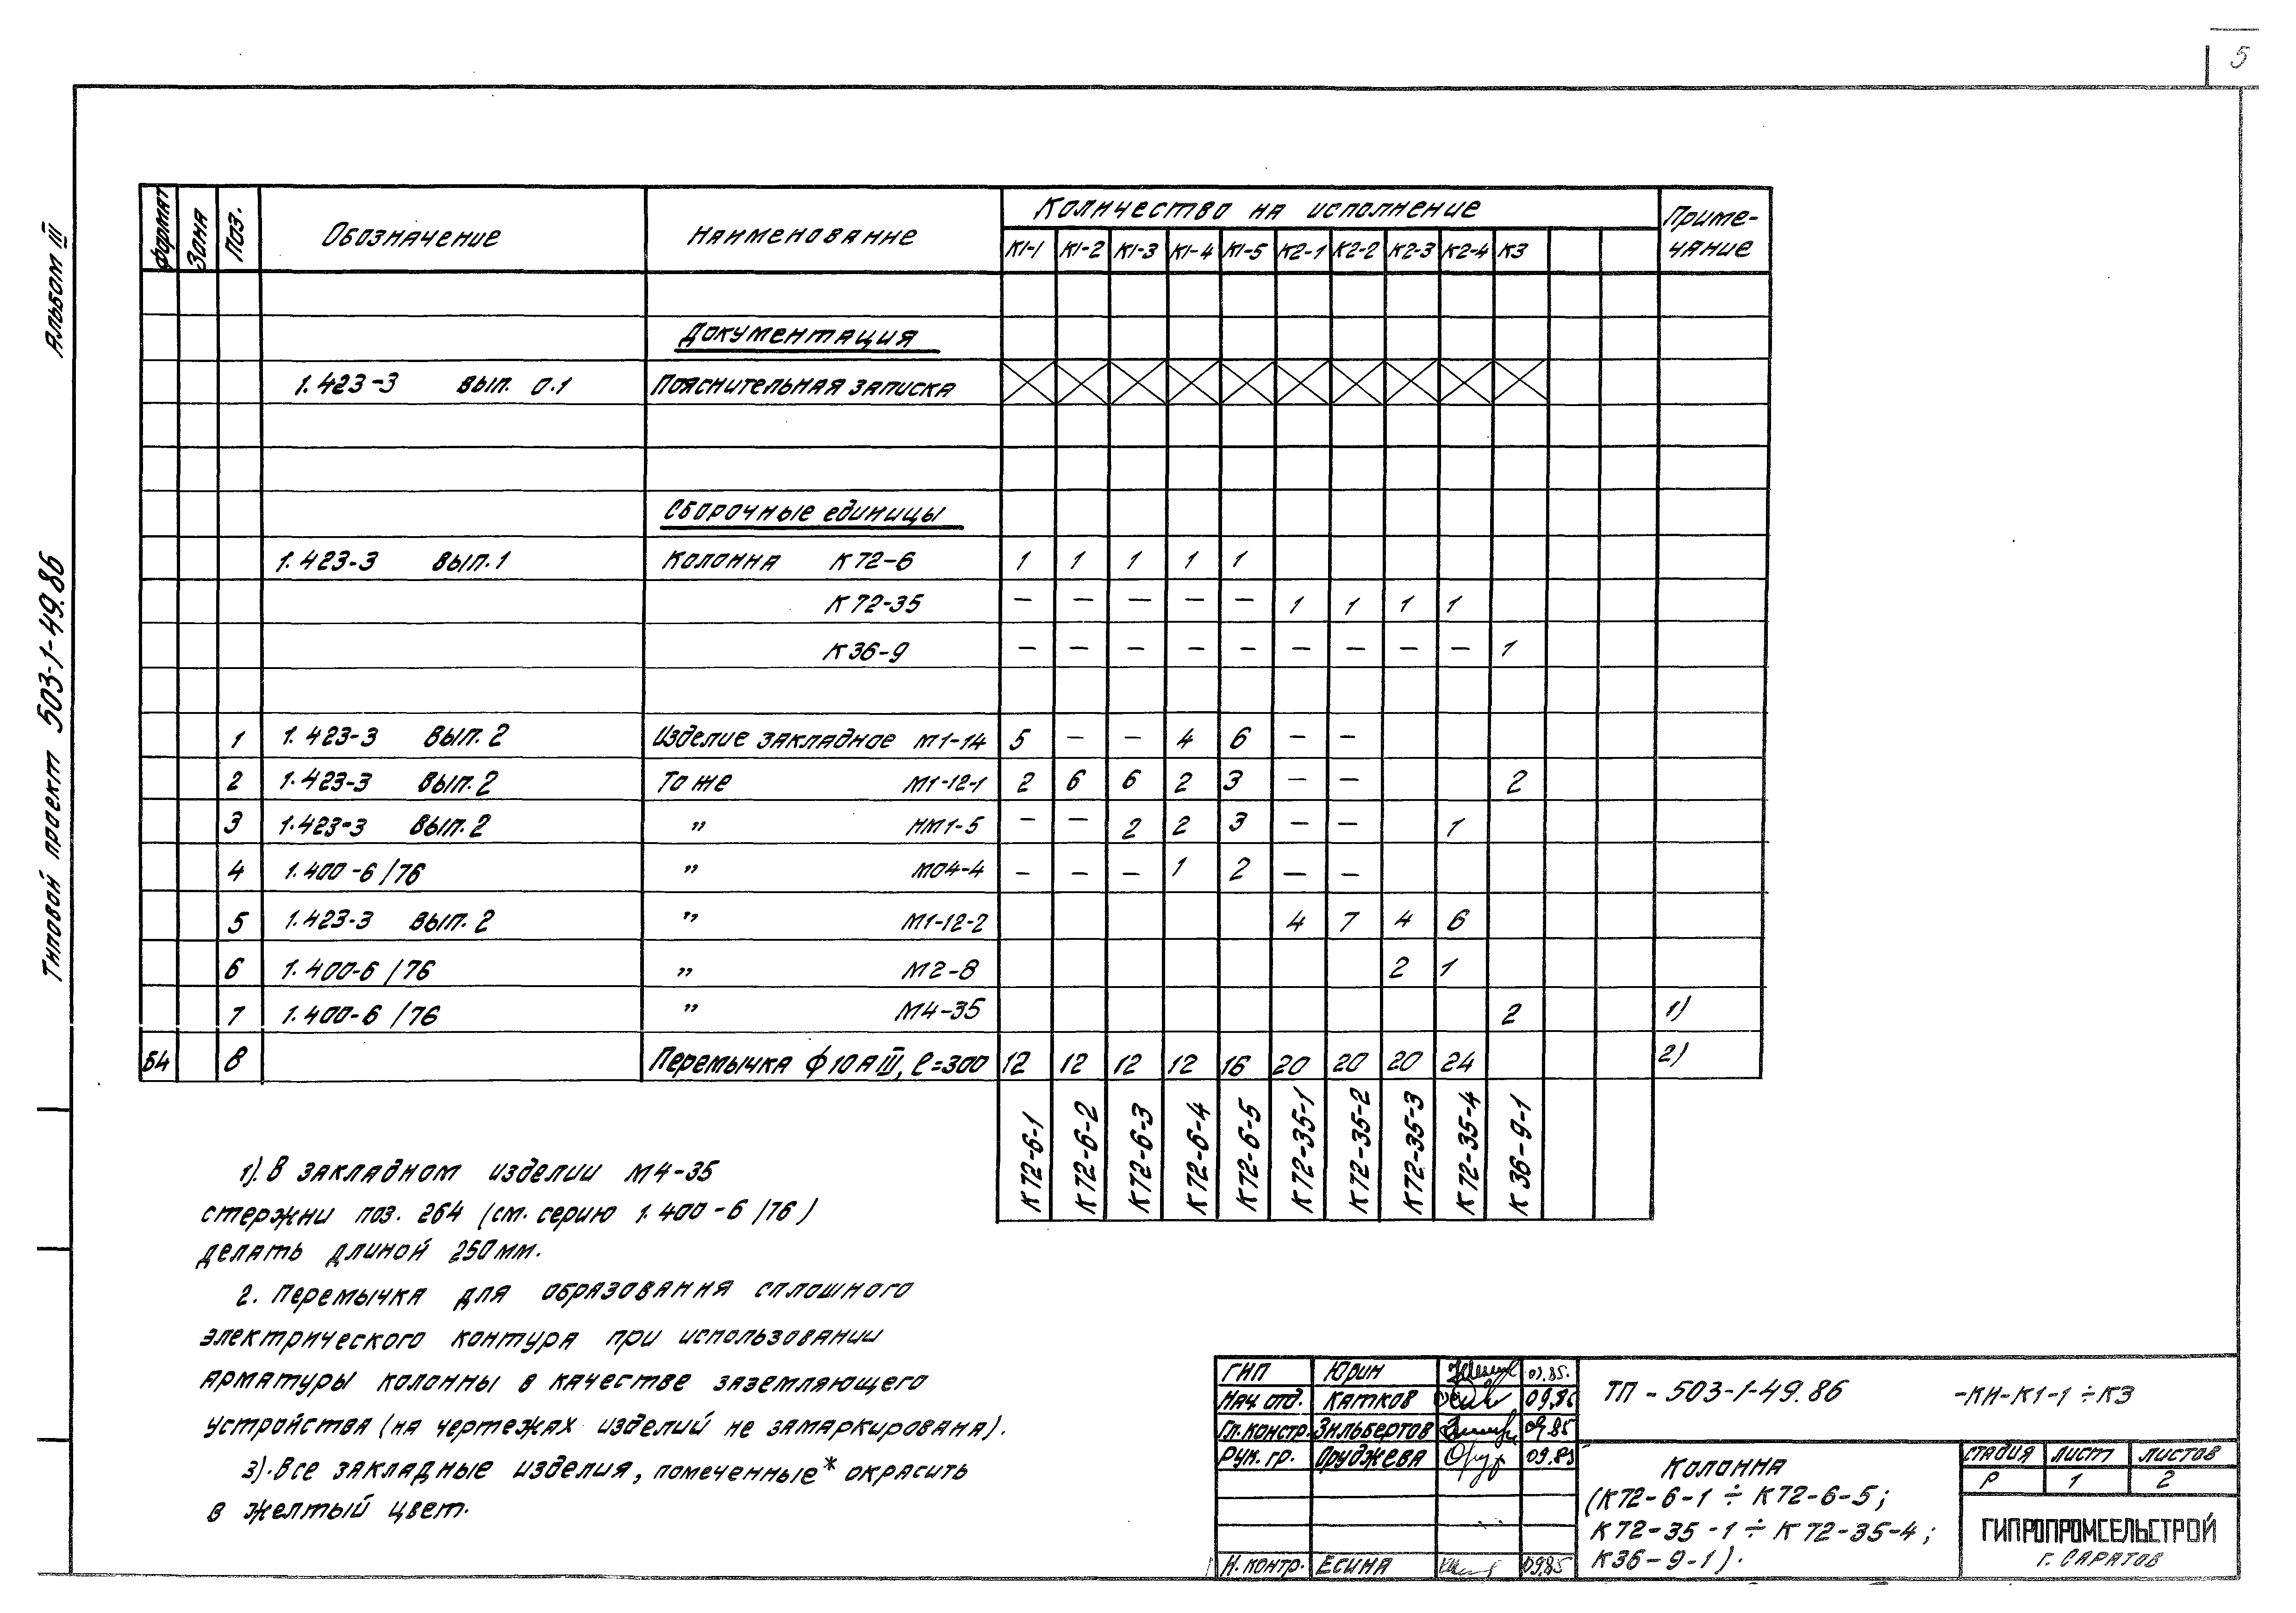 5
Альбом III
Типовой проект 503-1-49.86
Формат Зона Поз. Обозначение Наименование Количество на исполнение Приме-
чание
К1-1 К1-2 К1-3 К1-4 К1-5 К2-1 К2-2 К2-3 К2-4 К3
Документация
1.423-3 вып. 0.1 Пояснительная записка
Сборочные единицы
1.423-3 вып.1 Колонна К72-6 1 1 1 1 1
К72-35 – – – – – 1 1 1 1
К36-9 – – – – – – – – – 1
1 1.423-3 вып.2 Изделие закладное М1-14 5 – – 4 6 – –
2 1.423-3 вып.2 То же М1-12-1 2 6 6 2 3 – – 2
3 1.423-3 вып.2 " НМ1-5 – – 2 2 3 – – 1
4 1.400-6/76 " М04-4 – – – 1 2 – –
5 1.423-3 вып.2 " М1-12-2 4 7 4 6
6 1.400-6/76 " М2-8 2 1
7 1.400-6/76 " М4-35 2 1)
Б4 8 Перемычка ф10АIII, ℓ=300 12 12 12 12 16 20 20 20 24 2)
К72-6-1 К72-6-2 К72-6-3 К72-6-4 К72-6-5 К72-35-1 К72-35-2 К72-35-3 К72-35-4 К36-9-1
1). В закладном изделии М4-35
стержни поз. 264 (см. серию 1.400-6/76)
делать длиной 250мм.
2. Перемычка для образования сплошного
электрического контура при использовании
арматуры колонны в качестве заземляющего
устройства (на чертежах изделий не замаркирована).
3). Все закладные изделия, помеченные* окрасить
в желтый цвет.
ГИП Юрин 09.85.
Нач. отд. Катков 09.85
Гл.констр. Зильбертов 09.85
Рук. гр. Оруджева 09.85
Н. контр. Есина 09.85
ТП - 503-1-49.86 -КН-К1-1÷К3
Колонна
(К72-6-1 ÷ К72-6-5;
К72-35-1 ÷ К72-35-4;
К36-9-1).
стадия лист листов
Р 1 2
ГИПРОПРОМСЕЛЬСТРОЙ
г. Саратов